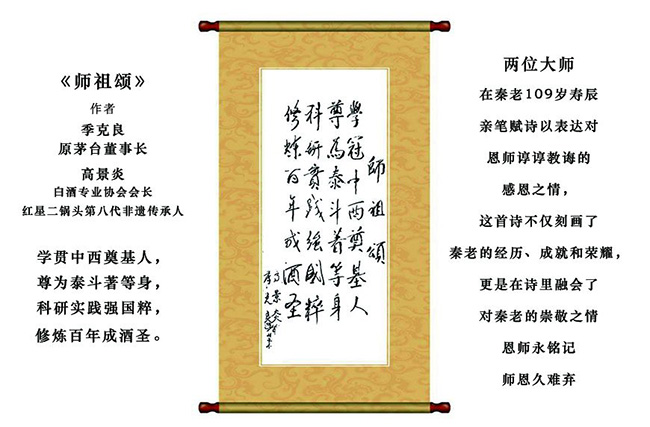 《师祖颂》
作者
季克良
原茅台董事长
高景炎
白酒专业协会会长
红星二锅头第八代非遗传承人
学贯中西奠基人，
尊为泰斗著等身，
科研实践强国粹，
修炼百年成酒圣。
師祖頌
學冠中西奠基人
尊為泰斗着等身
科研實践強國粹
修煉百年成酒圣
高景炎
季克良
两位大师
在秦老109岁寿辰
亲笔赋诗以表达对
恩师谆谆教诲的
感恩之情，
这首诗不仅刻画了
秦老的经历、成就和荣耀，
更是在诗里融会了
对秦老的崇敬之情
恩师永铭记
师恩久难弃